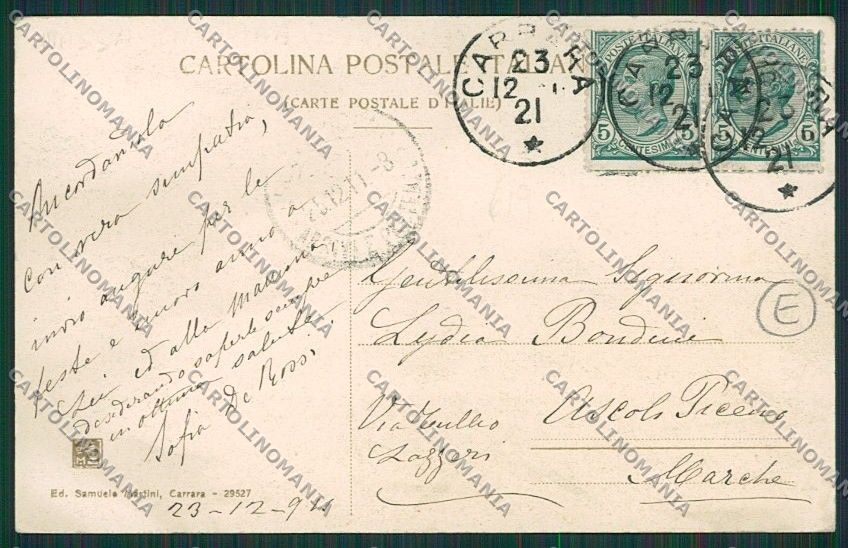 CARTOLINA POSTALE ITALIANA
(CARTE POSTALE D'ITALIE)
CARRARA
23
12
21
CARRARA
23
12
21
CARRARA
23
12
21
POSTE ITALIANE
5 CENTESIMI 5
POSTE ITALIANE
5 5
Ricordandola
con vera simpatia,
invio auguri per le
feste e nuovo anno a
Lei ed alla mamma
desiderando saperle sempre
in ottima salute
Sofia De Rossi
Gentilissima Signorina
Lydia Bondini
Via Tullio
Lazzari
Ascoli Piceno
Marche
E
Ed. Samuele Martini, Carrara - 29527
23-12-921
CARTOLINOMANIA